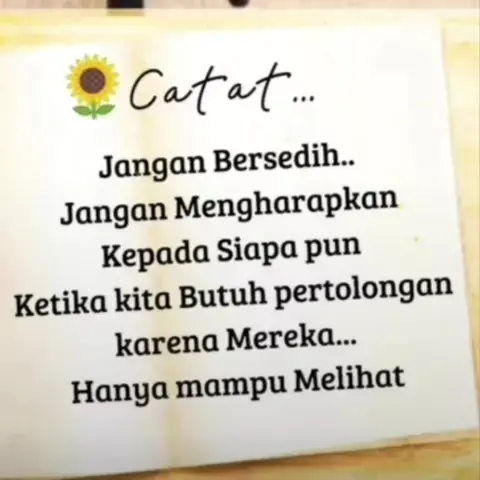 Catat...
Jangan Bersedih..
Jangan Mengharapkan
Kepada Siapa pun
Ketika kita Butuh pertolongan
karena Mereka...
Hanya mampu Melihat